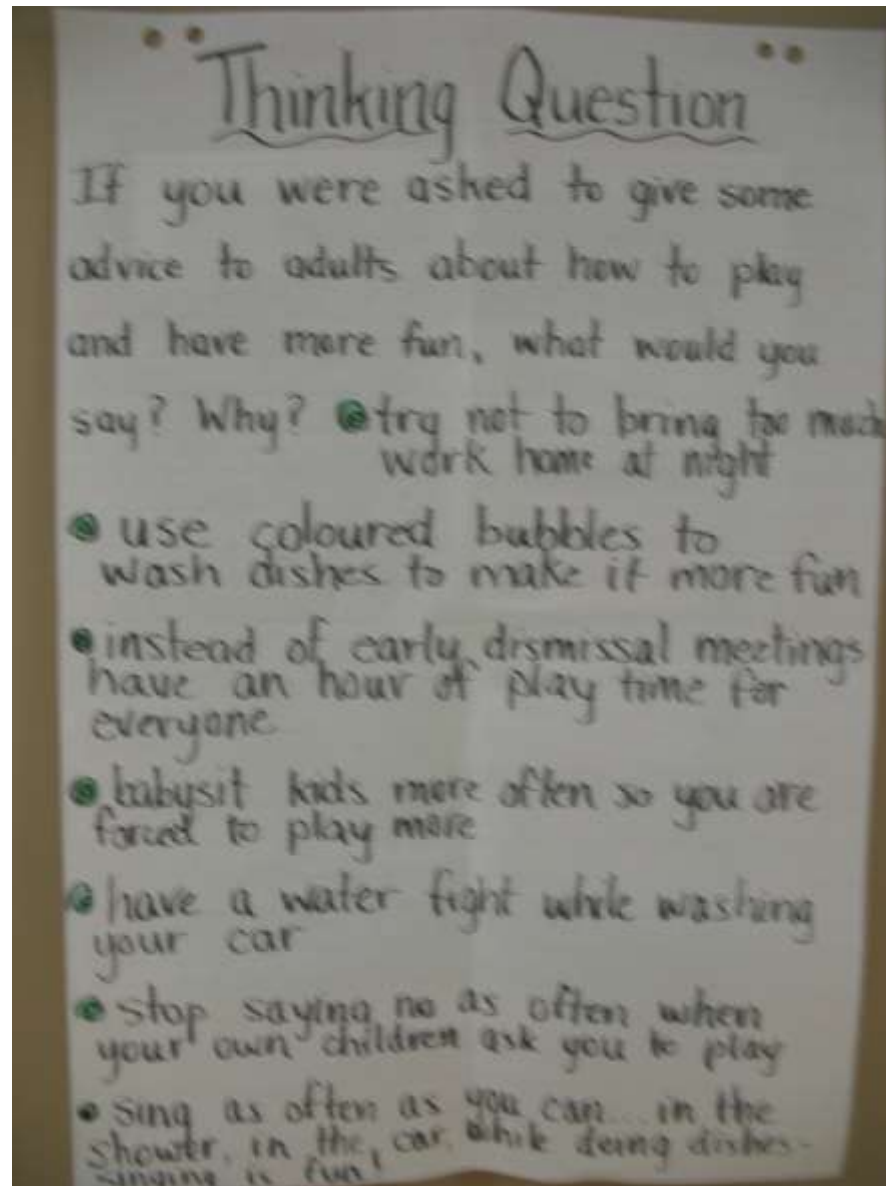 Thinking Question
If you were asked to give some
advice to adults about how to play
and have more fun, what would you
say? Why? try not to bring too much
work home at night
use coloured bubbles to
wash dishes to make it more fun
instead of early dismissal meetings
have an hour of play time for
everyone
babysit kids more often so you are
forced to play more
have a water fight while washing
your car
stop saying no as often when
your own children ask you to play
sing as often as you can... in the
shower, in the car, while doing dishes-
singing is fun!